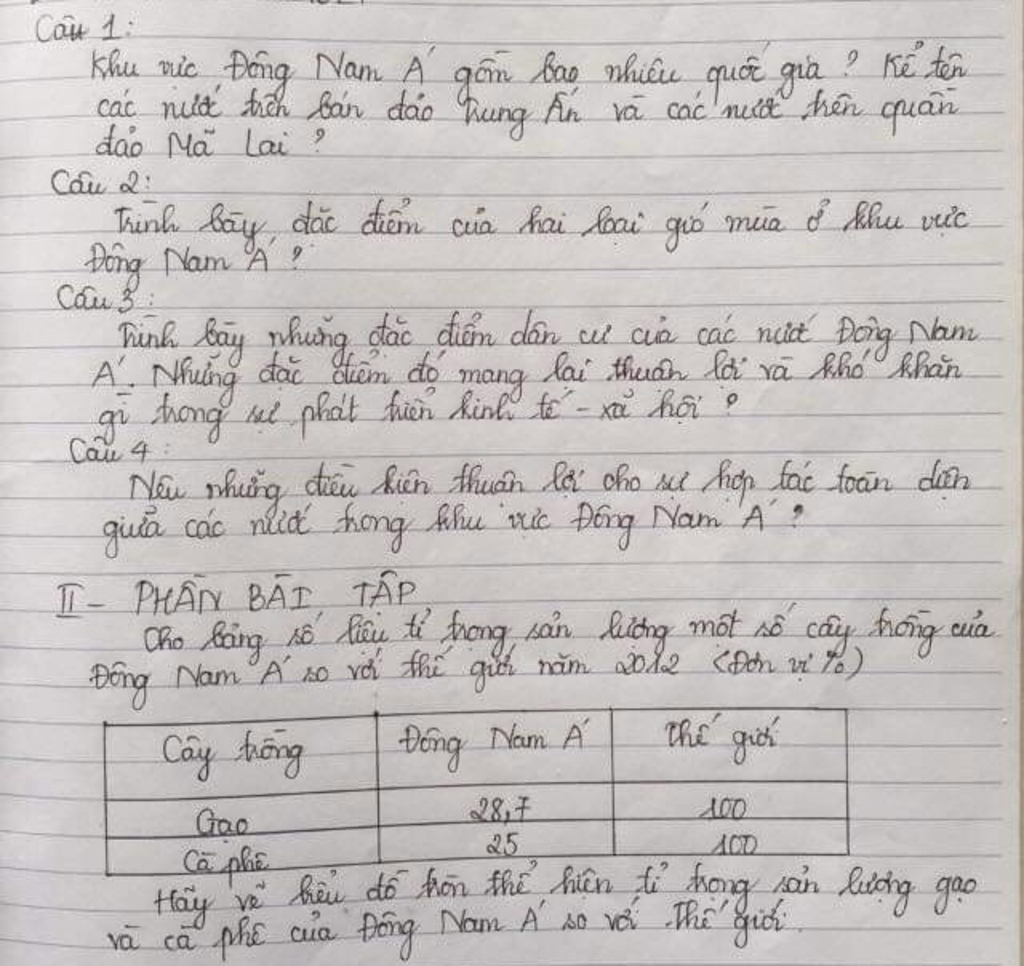 Câu 1:
Khu vực Đông Nam Á gồm bao nhiêu quốc gia ? Kể tên
các nước trên bán đảo Trung Ấn và các nước trên quần
đảo Mã Lai ?
Câu 2:
Trình bày đặc điểm của hai loại gió mùa ở khu vực
Đông Nam Á ?
Câu 3 :
Trình bày những đặc điểm dân cư của các nước Đông Nam
Á. Những đặc điểm đó mang lại thuận lợi và khó khăn
gì trong sự phát triển kinh tế - xã hội ?
Câu 4 :
Nêu những điều kiện thuận lợi cho sự hợp tác toàn diện
giữa các nước trong khu vực Đông Nam Á ?
II - PHẦN BÀI TẬP
Cho bảng số liệu tỉ trọng sản lượng một số cây trồng của
Đông Nam Á so với thế giới năm 2012 (Đơn vị %)
Cây trồng Đông Nam Á Thế giới
Gạo 28,7 100
Cà phê 25 100
Hãy vẽ biểu đồ tròn thể hiện tỉ trọng sản lượng gạo
và cà phê của Đông Nam Á so với Thế giới.